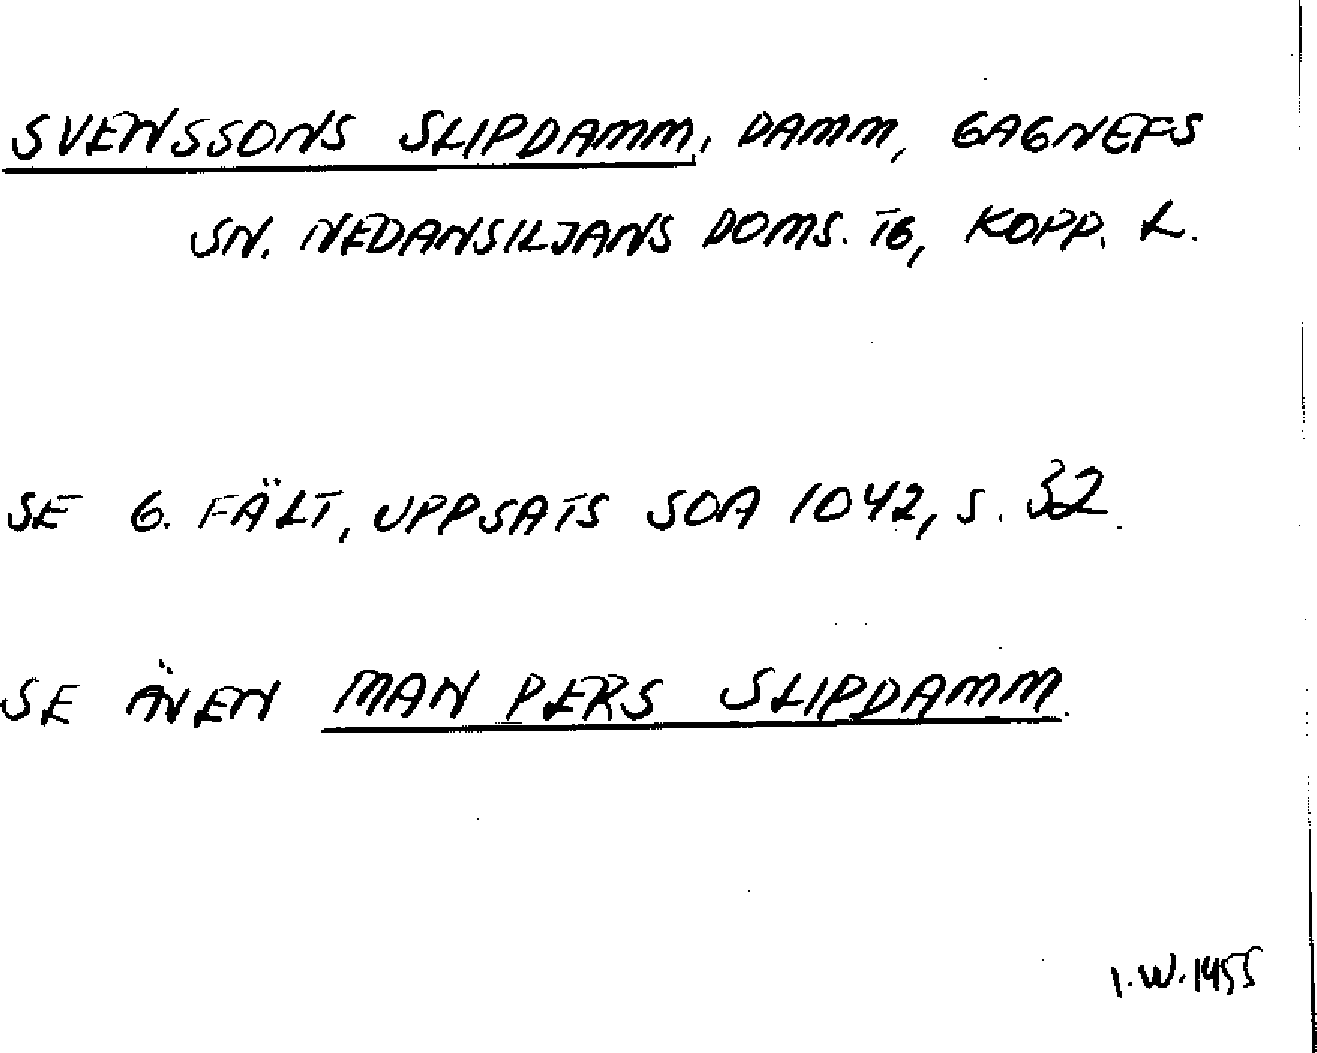 SVENSSONS SLIPDAMM, DAMM, GAGNEFS
SN. NEDANSILJANS DOMS. TG, KOPP. L.
SE G. FÄLT, UPPSATS SOA 1042, S. 32.
SE ÄVEN MAN PERS SLIPDAMM.
I.W. 1955